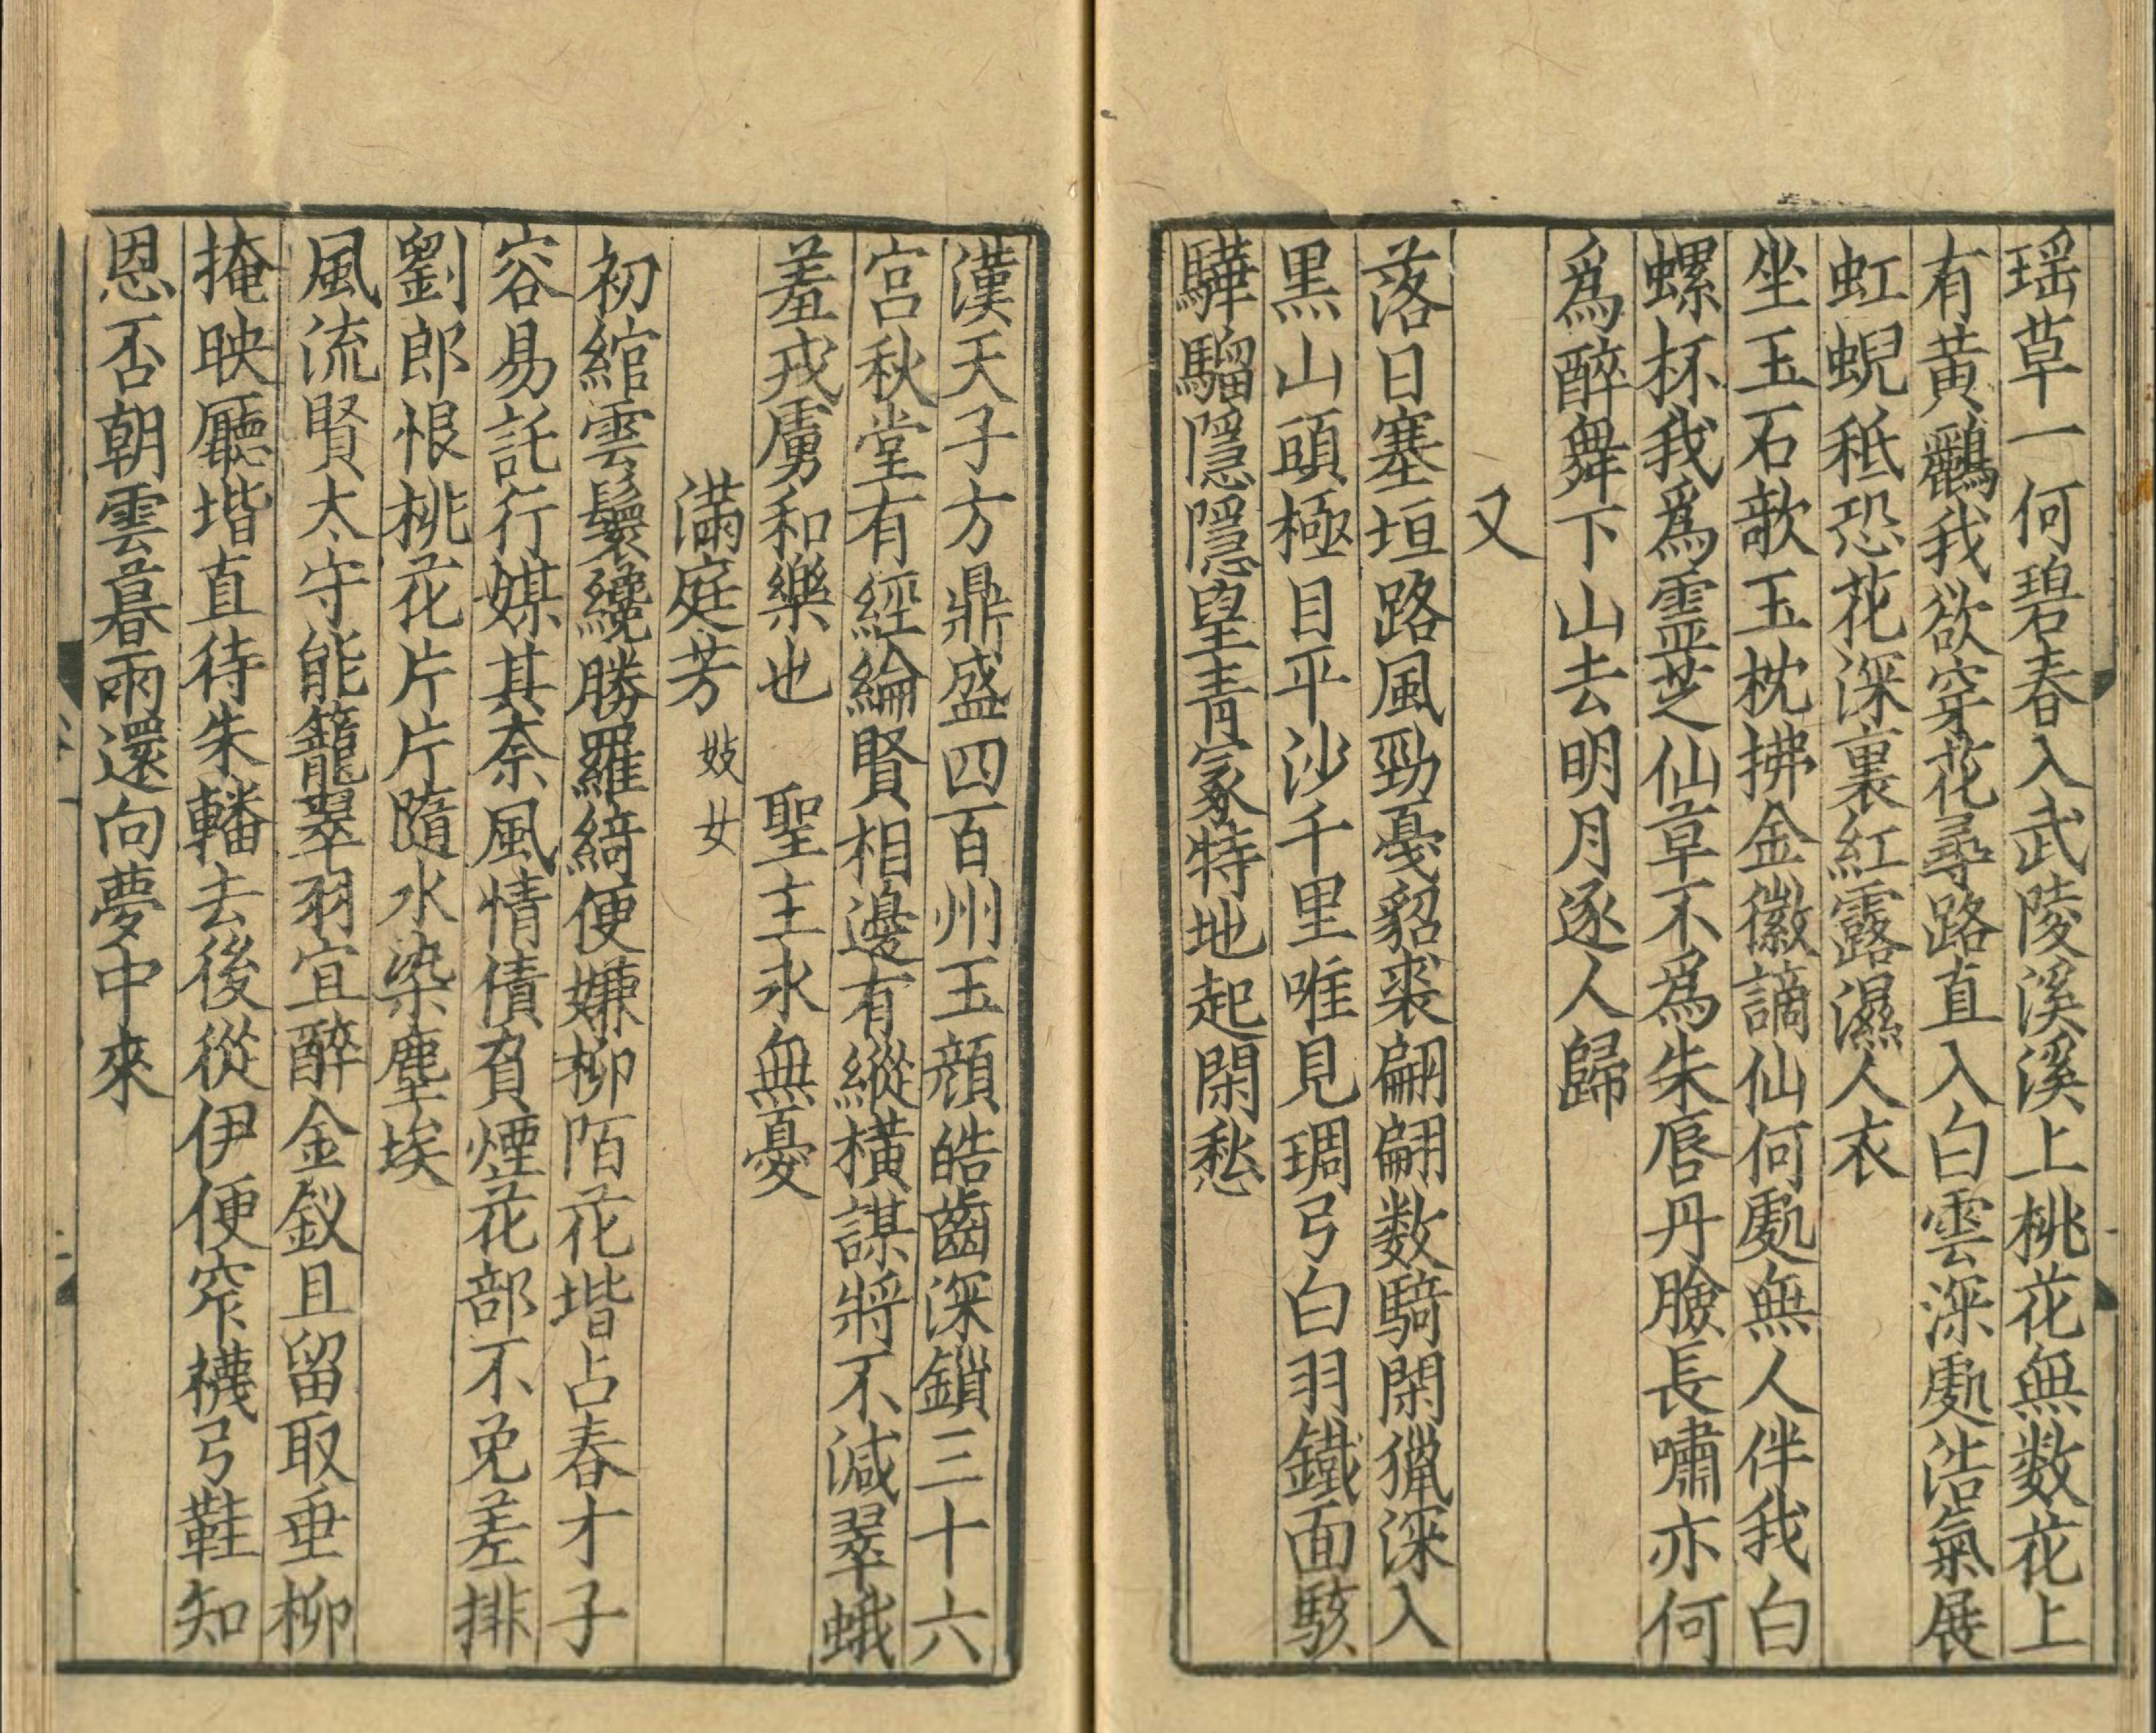 瑶草一何碧春入武陵溪溪上桃花無数花上
有黄鸝我欲穿花尋路直入白雲深處浩氣展
虹蜺秖恐花深裏紅露濕人衣
坐玉石欹玉枕拂金徽謫仙何處無人伴我白
螺杯我爲靈芝仙草不爲朱唇丹臉長嘯亦何
爲醉舞下山去明月逐人歸
又
落日塞垣路風勁戞貂裘翩翩数騎閑獵深入
黒山頭極目平沙千里唯見琱弓白羽鐵面駭
驊騮隱隱望青冢特地起閑愁
漢天子方鼎盛四百州玉顔皓齒深鎖三十六
宮秋堂有經綸賢相邊有縱橫謀將不減翠蛾
羞戎虜和樂也　聖主永無憂
滿庭芳 妓女
初綰雲鬟纔勝羅綺便嫌柳陌花堦占春才子
容易託行媒其奈風情債負煙花部不免差排
劉郎恨桃花片片隨水染塵埃
風流賢太守能籠翠羽宜醉金釵且留取垂柳
掩映廳堦直待朱轓去後從伊便窄襪弓鞋知
恩否朝雲暮雨還向夢中來